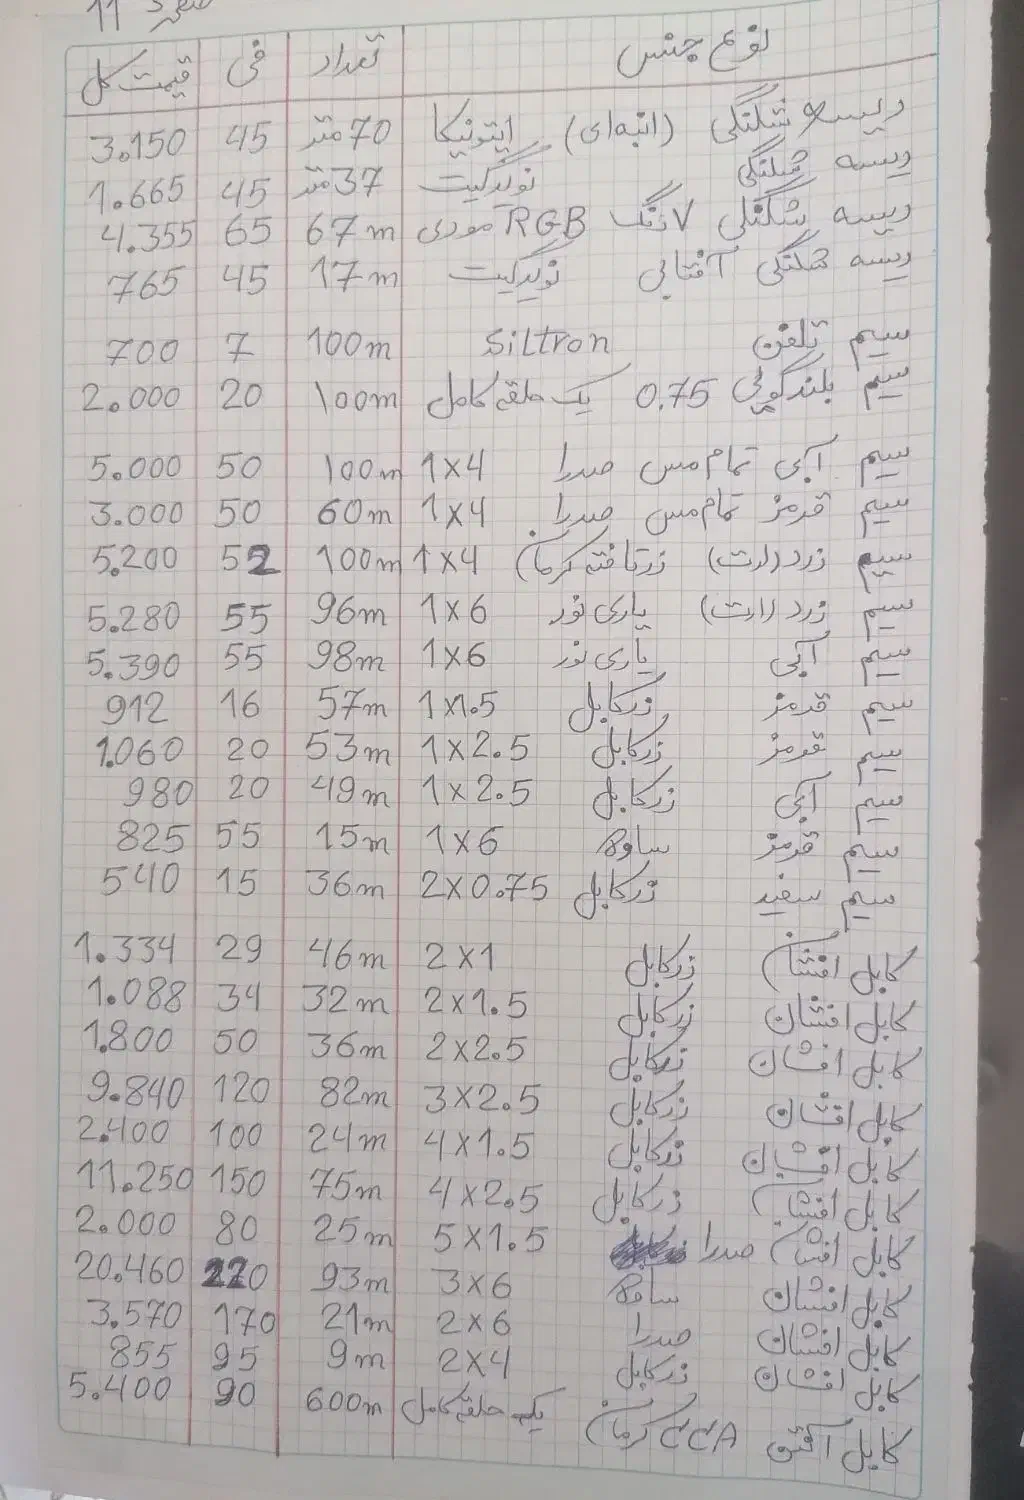 صفحه 11
نوع جنس تعداد فی قیمت کل
ریسه شلنگی (انبه‌ای) ایتونیکا 70 متر 45 3.150
ریسه شلنگی نویدگیت 37 متر 45 1.665
ریسه شلنگی 7 رنگ RGB موری 67m 65 4.355
ریسه شلنگی آفتابی نویدگیت 17m 45 765
سیم تلفن Siltron 100m 7 700
سیم بلندگویی 0.75 یک حلقه کامل 100m 20 2.000
سیم آبی تمام مس صدرا 1x4 100m 50 5.000
سیم قرمز تمام مس صدرا 1x4 60m 50 3.000
سیم زرد (ارت) زرتافته کرمان 1x4 100m 52 5.200
سیم زرد (ارت) یاری نور 1x6 96m 55 5.280
سیم آبی یاری نور 1x6 98m 55 5.390
سیم قرمز زرکابل 1x1.5 57m 16 912
سیم قرمز زرکابل 1x2.5 53m 20 1.060
سیم آبی زرکابل 1x2.5 49m 20 980
سیم قرمز ساوه 1x6 15m 55 825
سیم سفید زرکابل 2x0.75 36m 15 540
کابل افشان زرکابل 2x1 46m 29 1.334
کابل افشان زرکابل 2x1.5 32m 34 1.088
کابل افشان زرکابل 2x2.5 36m 50 1.800
کابل افشان زرکابل 3x2.5 82m 120 9.840
کابل افشان زرکابل 4x1.5 24m 100 2.400
کابل افشان زرکابل 4x2.5 75m 150 11.250
کابل افشان صدرا 5x1.5 25m 80 2.000
کابل افشان ساوه 3x6 93m 220 20.460
کابل افشان صدرا 2x6 21m 170 3.570
کابل افشان زرکابل 2x4 9m 95 855
کابل آنتن CCA کرمان یک حلقه کامل 600m 90 5.400